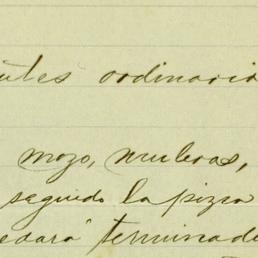 utes ordinario
mozo, nuevas,
seguido la pizca
edará terminad